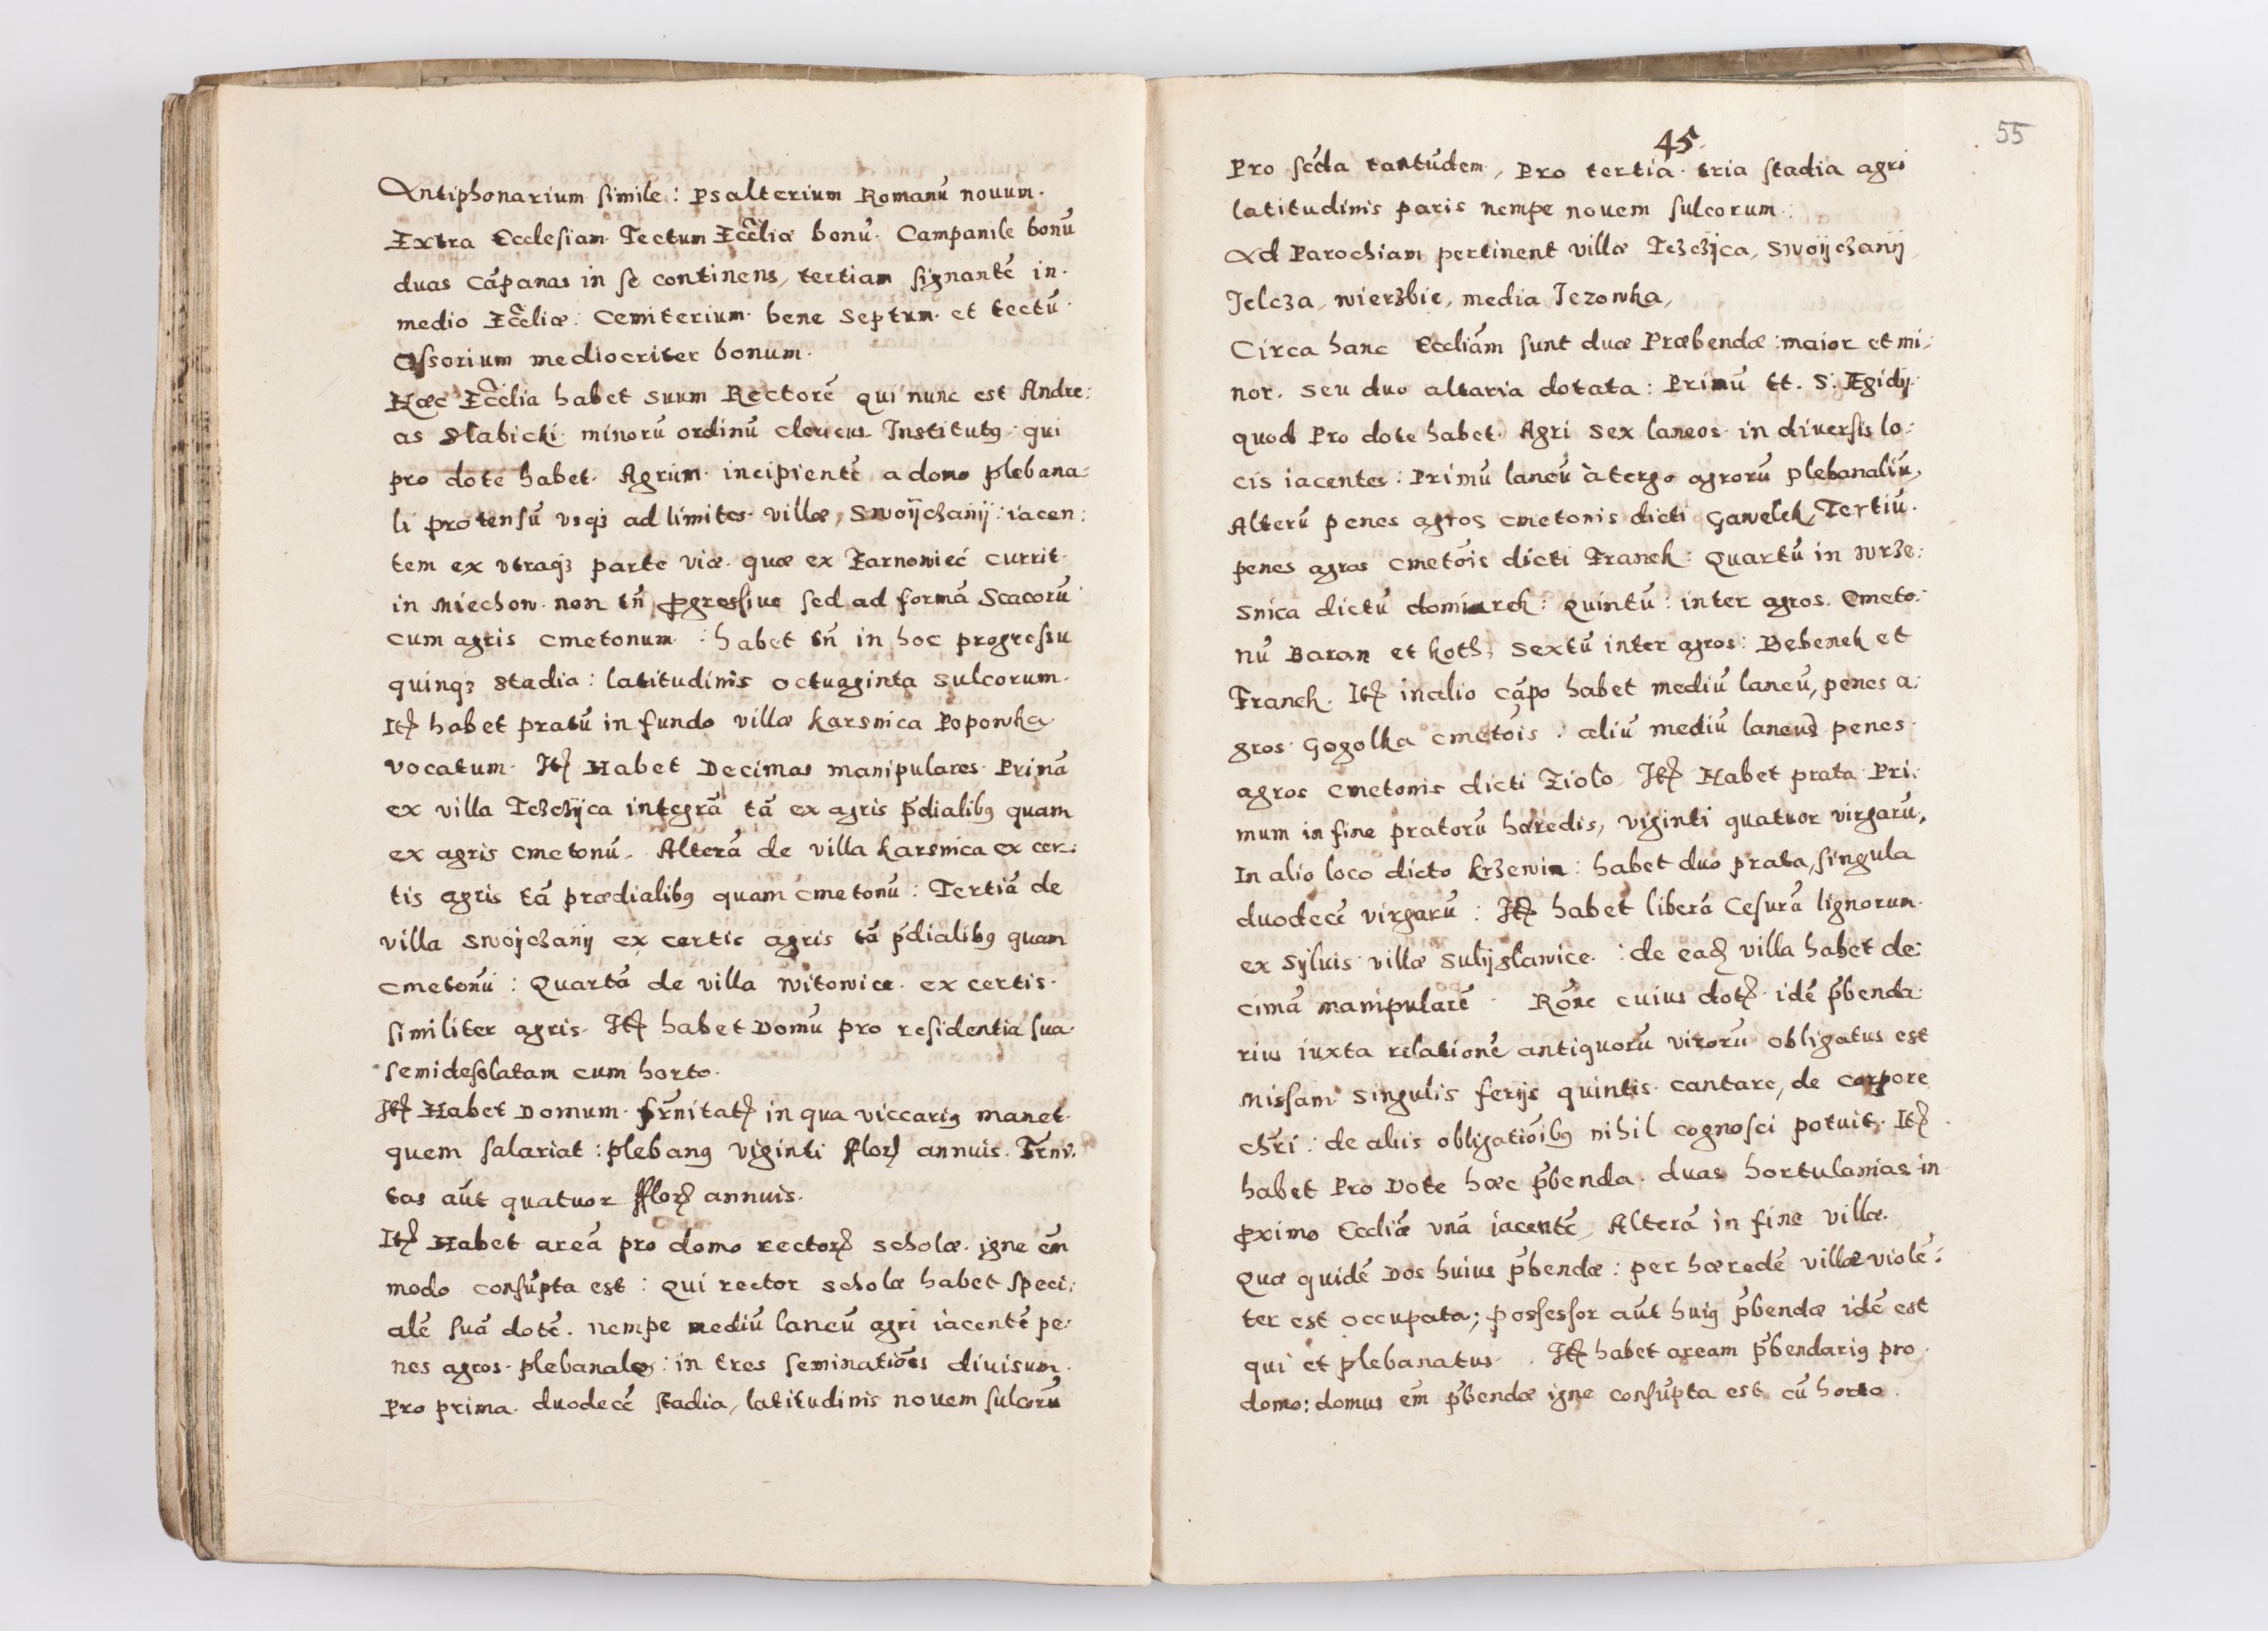 Antiphonarium simile: Psalterium Romanū nouum.
Extra Ecclesiam. Tectum Eccłiæ bonū. Campanile bonū
duas Cāpanas in se continens, tertiam signantē in.
medio Eccłiæ: Cemiterium. bene Septum. et tectū.
Ossorium mediocriter bonum.
Hæc Eccłia habet suum Rectorē qui nunc est Andre:
as Słabicki. minorū ordinū clericus. Institutꝰ. qui
pro dote habet. Agrum. incipientē a domo plebana:
li protensū vsqꝫ ad limites. villæ, Swoijchanij: iacen:
tem ex vtraqꝫ parte viæ. quæ ex Tarnowiec currit.
in Miechow. non tn̄ ꝓgressiue sed ad formā Scacorū
cum agris cmetonum. : habet tn̄ in hoc progressu
quinqꝫ stadia: latitudinis octuaginta sulcorum.
Itꝫ habet pratū in fundo villæ Karsnica Popowka
vocatum. Itꝫ Habet Decimas manipulares. Primā
ex villa Tczczijca integrā tā ex agris p̄dialibꝰ quam
ex agris cmetonū. Alterā de villa Karsnica ex cer:
tis agris tā prædialibꝰ quam cmetonū: Tertiā de
villa Swoijchanij ex certis agris tā p̄dialibꝰ quam
cmetonū: Quartā de villa Witowice. ex certis.
similiter agris. Itꝫ habet Domū pro residentia sua.
semidesolatam cum horto.
Itꝫ Habet Domum. frn̄itatꝫ in qua viccariꝰ manet.
quem salariat: plebanꝰ viginti fflorꝫ annuis. Frn̄i:
tas aūt quatuor fflorꝫ annuis.
Itꝫ Habet areā pro domo rectorꝫ scholæ. igne em̄
modo consūpta est: Qui rector scholæ habet speci:
alē suā dotē. nempe mediū laneū agri iacentē pe:
nes agros. plebanales: in tres seminatiōes diuisum.
Pro prima. duodecē stadia, latitudinis nouem sulcorū
45.
55
Pro sc̄da tantūdem, Pro tertia. tria stadia agri
latitudinis paris nempe nouem sulcorum.
Ad Parochiam pertinent villæ Tczczijca, Swoijchanij,
Jelcza, wierzbie, media Jezowka,
Circa hanc Eccliām sunt duæ Præbendæ: maior et mi:
nor. Seu duo altaria dotata: Primū tt. S. Ægidij.
quod Pro dote habet. Agri sex laneos. in diuersis lo:
cis iacentes: Primū laneū à tergo agrorū plebanaliū,
Alterū penes agros cmetonis dicti Gawełek, Tertiū.
penes agros cmetōis dicti Franek: Quartū in Wrze:
snica dictū dominrek: Quintū: inter agros. Cmeto:
nū Baran et Koth, Sextū inter agros: Bebenek et
Franek. Itꝫ in alio cāpo habet mediū laneū, penes a:
gros. Gogolka cmetōis. aliū mediū laneus penes.
agros cmetonis dicti Ziolo. Itꝫ Habet prata. Pri:
mum in fine pratorū hæredis, viginti quatuor virgarū,
In alio loco dicto Krzewin: habet duo prata, singula
duodecē virgarū: Itꝫ habet liberā Cesurā lignorum.
ex syluis villæ Sulijsławice. : de eadꝫ villa habet de:
cimā manipularē. Rōne cuius dotꝫ. idē p̄benda:
rius iuxta relationē antiquorū virorū obligatus est
Missam Singulis ferijs quintis. cantare, de corpore
chr̄i: de aliis obligatiōibꝰ nihil cognosci potuit. Itꝫ
habet Pro Dote hæc p̄benda. duas hortulanias in
ꝓximo Eccliæ vnā iacentē, Alterā in fine villæ.
Quæ quidē Dos huius p̄bendæ: per hæredē villæ violē:
ter est occupata; possessor aūt huiꝰ p̄bendæ idē est
qui et plebanatus. Itꝫ habet aream p̄bendariꝰ pro
domo: domus em̄ p̄bendæ igne consūpta est cū horto.